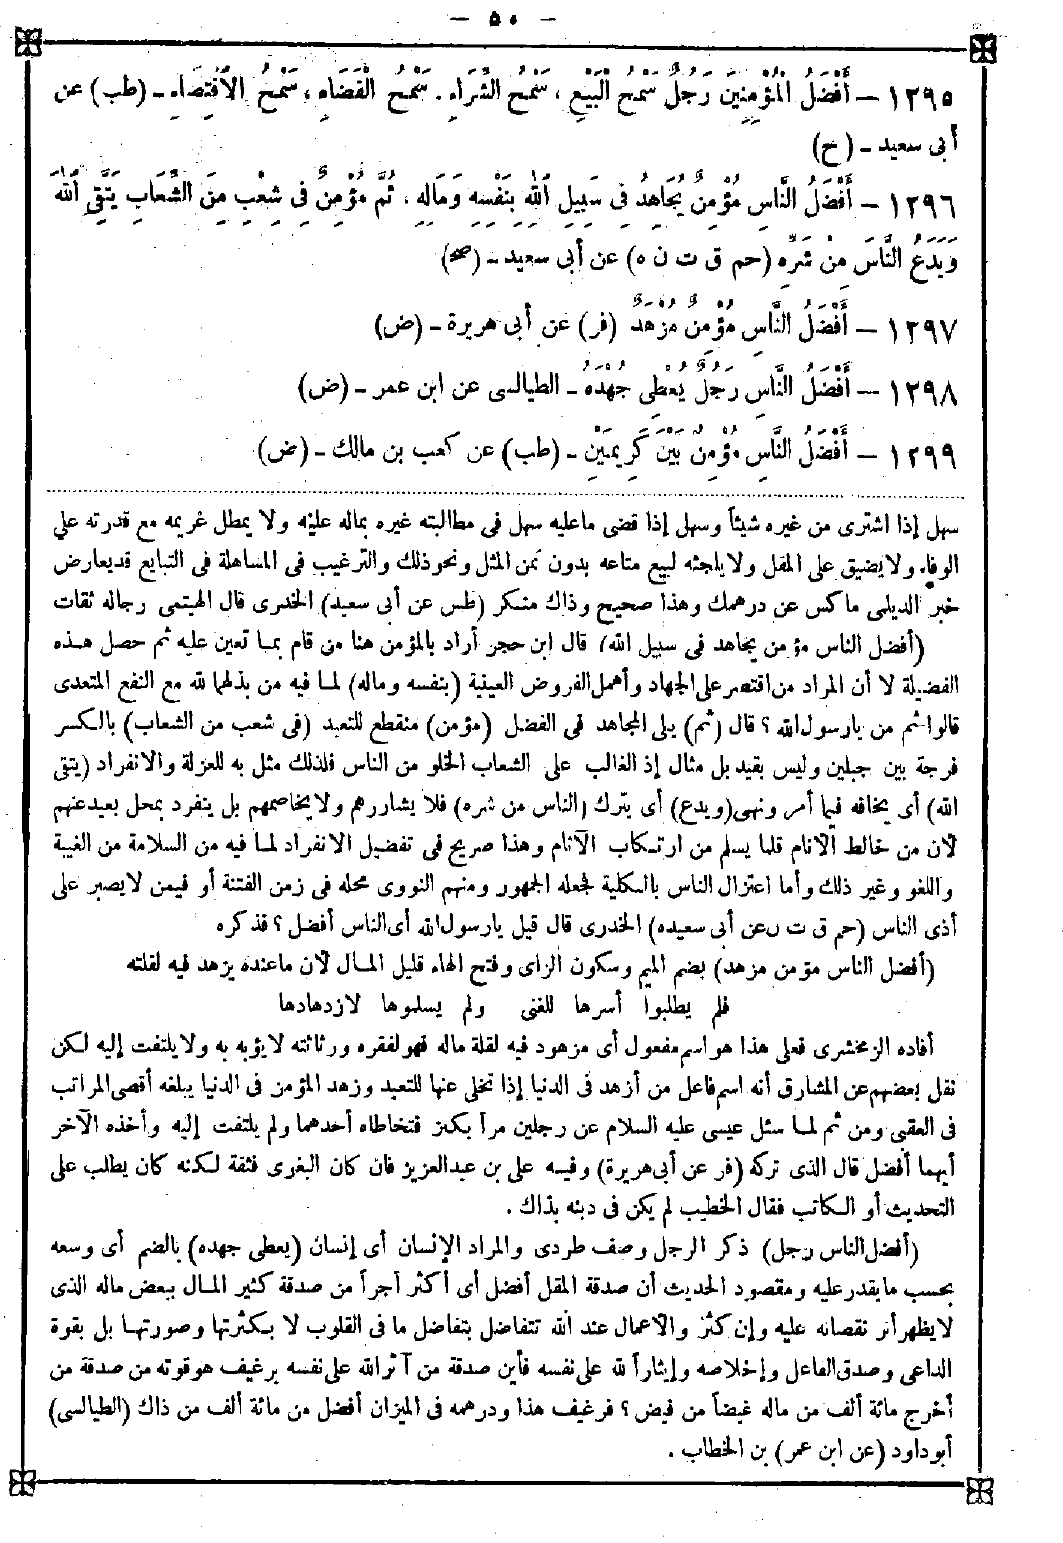 — ٥٠ —
١٢٩٥ — أَفْضَلُ الْمُؤْمِنِينَ رَجُلٌ سَمْحُ الْبَيْعِ ، سَمْحُ الشِّرَاءِ . سَمْحُ الْقَضَاءِ ، سَمْحُ الْاقْتِضَاءِ - (طب) عن
أبى سعيد - (ح)
١٢٩٦ — أَفْضَلُ النَّاسِ مُؤْمِنٌ يُجَاهِدُ فِى سَبِيلِ اللهِ بِنَفْسِهِ وَمَالِهِ ، ثُمَّ مُؤْمِنٌ فِى شِعْبٍ مِنَ الشِّعَابِ يَتَّقِى اللهَ
وَيَدَعُ النَّاسَ مِنْ شَرِّهِ (حم ق ت ن ه) عن أبى سعيد - (صح)
١٢٩٧ — أَفْضَلُ النَّاسِ مُؤْمِنٌ مُزْهَدٌ (فر) عن أبى هريرة - (ض)
١٢٩٨ — أَفْضَلُ النَّاسِ رَجُلٌ يُعْطِى جُهْدَهُ - الطيالسى عن ابن عمر - (ض)
١٢٩٩ — أَفْضَلُ النَّاسِ مُؤْمِنٌ بَيْنَ كَرِيمَيْنِ - (طب) عن كعب بن مالك - (ض)
سهل إذا اشترى من غيره شيئاً وسهل إذا قضى ماعليه سهل فى مطالبته غيره بماله عليه ولا يمطل غريمه مع قدرته على
الوفاء ولايضيق على المقل ولا يلجئه لبيع متاعه بدون ثمن المثل ونحو ذلك والترغيب فى المساهلة فى التبايع قديعارض
خبر الديلمى ماكس عن درهمك وهذا صحيح وذاك منكر (طس عن أبى سعيد) الخدرى قال الهيتمى رجاله ثقات
(أفضل الناس مؤمن يجاهد فى سبيل الله) قال ابن حجر أراد بالمؤمن هنا من قام بما تعين عليه ثم حصل هذه
الفضيلة لا أن المراد من اقتصر على الجهاد وأهمل الفروض العينية (بنفسه وماله) لما فيه من بذلهما لله مع النفع المتعدى
قالوا ثم من يارسول الله ؟ قال (ثم) يلى المجاهد فى الفضل (مؤمن) منقطع للتعبد (فى شعب من الشعاب) بالكسر
فرجة بين جبلين وليس بقيد بل مثال إذ الغالب على الشعاب الخلو من الناس فلذلك مثل به للعزلة والانفراد (يتقى
الله) أى يخافه فيما أمر ونهى (ويدع) أى يترك (الناس من شره) فلا يشاررهم ولا يخاصمهم بل ينفرد بمحل بعيد عنهم
لأن من خالط الأنام قلما يسلم من ارتكاب الآثام وهذا صريح فى تفضيل الانفراد لما فيه من السلامة من الغيبة
واللغو وغير ذلك وأما اعتزال الناس بالكلية فجعله الجمهور ومنهم النووى محله فى زمن الفتنة أو فيمن لايصبر على
أذى الناس (حم ق ت ن عن أبى سعيد ه) الخدرى قال قيل يارسول الله أى الناس أفضل ؟ فذكره
(أفضل الناس مؤمن مزهد) بضم الميم وسكون الزاى وفتح الهاء قليل المال لأن ماعنده يزهد فيه لقلته
فلم يطلبوا أسرها للغنى ولم يسلموها لازدهادها
أفاده الزمخشرى فعلى هذا هو اسم مفعول أى مزهود فيه لقلة ماله فهو لفقره ورثاثته لا يؤبه به ولا يلتفت إليه لكن
نقل بعضهم عن المشارق أنه اسم فاعل من أزهد فى الدنيا إذا تخلى عنها للتعبد وزهد المؤمن فى الدنيا يبلغه أقصى المراتب
فى العقبى ومن ثم لما سئل عيسى عليه السلام عن رجلين مرأ بكنز فتخطاه أحدهما ولم يلتفت إليه وأخذه الآخر
أيهما أفضل قال الذى تركه (فر عن أبى هريرة) وفيه على بن عبد العزيز فان كان البغوى فثقة لكنه كان يطلب على
التحديث أو الكاتب فقال الخطيب لم يكن فى دينه بذاك .
(أفضل الناس رجل) ذكر الرجل وصف طردى والمراد الإنسان أى إنسان (يعطى جهده) بالضم أى وسعه
بحسب مايقدر عليه ومقصود الحديث أن صدقة المقل أفضل أى أكثر أجراً من صدقة كثير المال ببعض ماله الذى
لا يظهر أثر نقصانه عليه وإن كثر والأعمال عند الله تتفاضل بتفاضل ما فى القلوب لا بكثرتها وصورتها بل بقوة
الداعى وصدق الفاعل وإخلاصه وإيثاراً لله على نفسه فأين صدقة من آثر الله على نفسه برغيف هو قوته من صدقة من
أخرج مائة ألف من ماله غيضاً من فيض ؟ فرغيف هذا ودرهمه فى الميزان أفضل من مائة ألف من ذاك (الطيالسى)
أبو داود (عن ابن عمر) بن الخطاب .